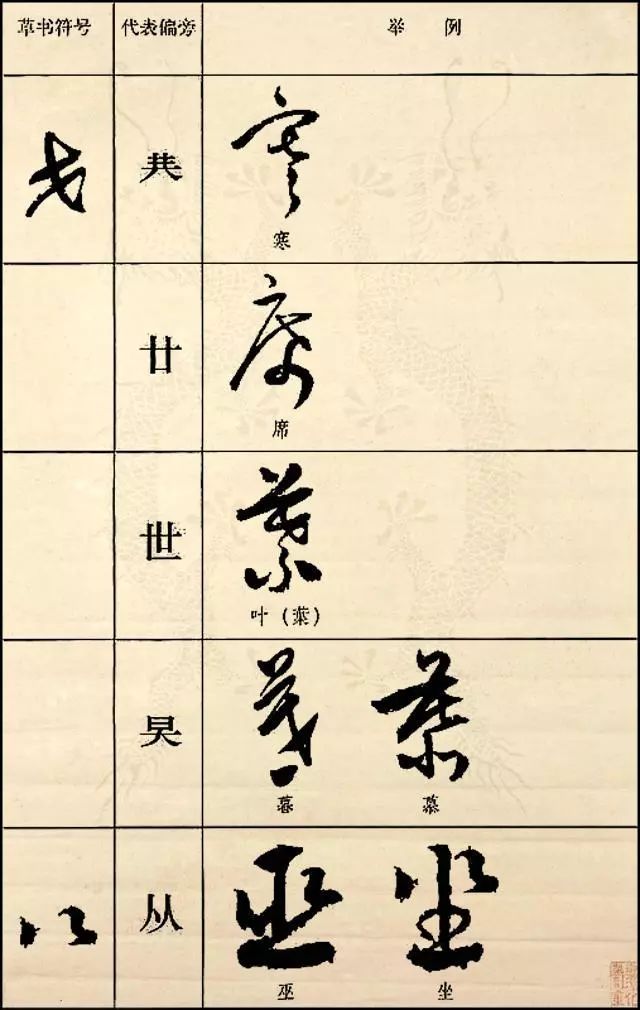 草书符号 代表偏旁 举例
共 寒
廿 席
世 叶(葉)
旲 暮 慕
从 巫 坐